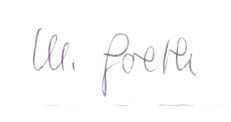 M. Goeth